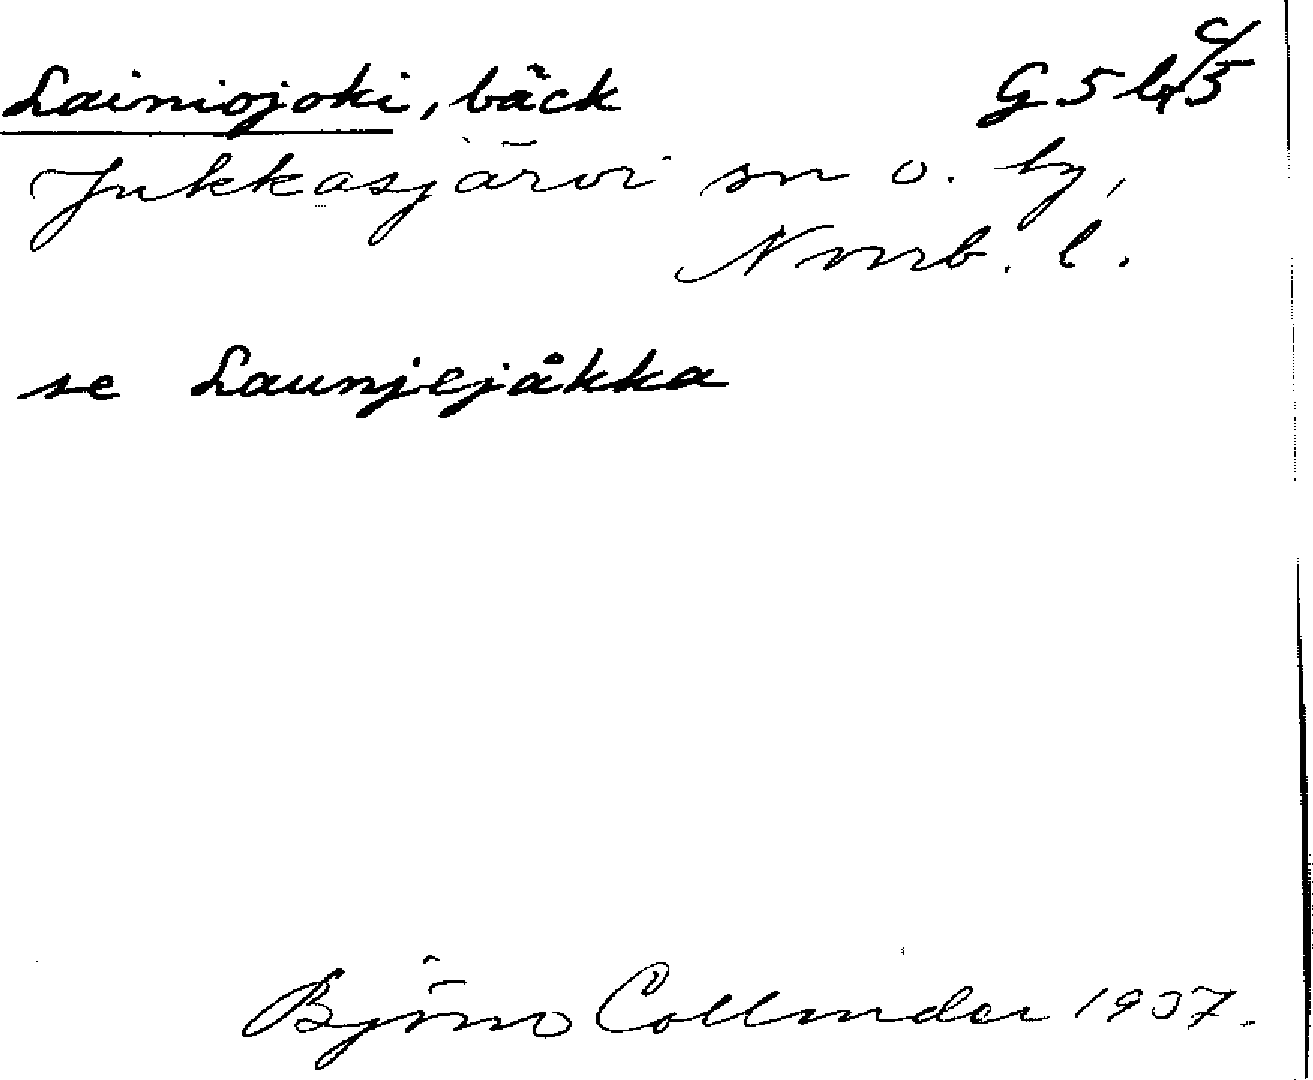 Lainiojoki, bäck G 5 b, c/5
Jukkasjärvi sn o. by,
Norrb. l.
se Launjejåkka
Björn Collinder 1937.